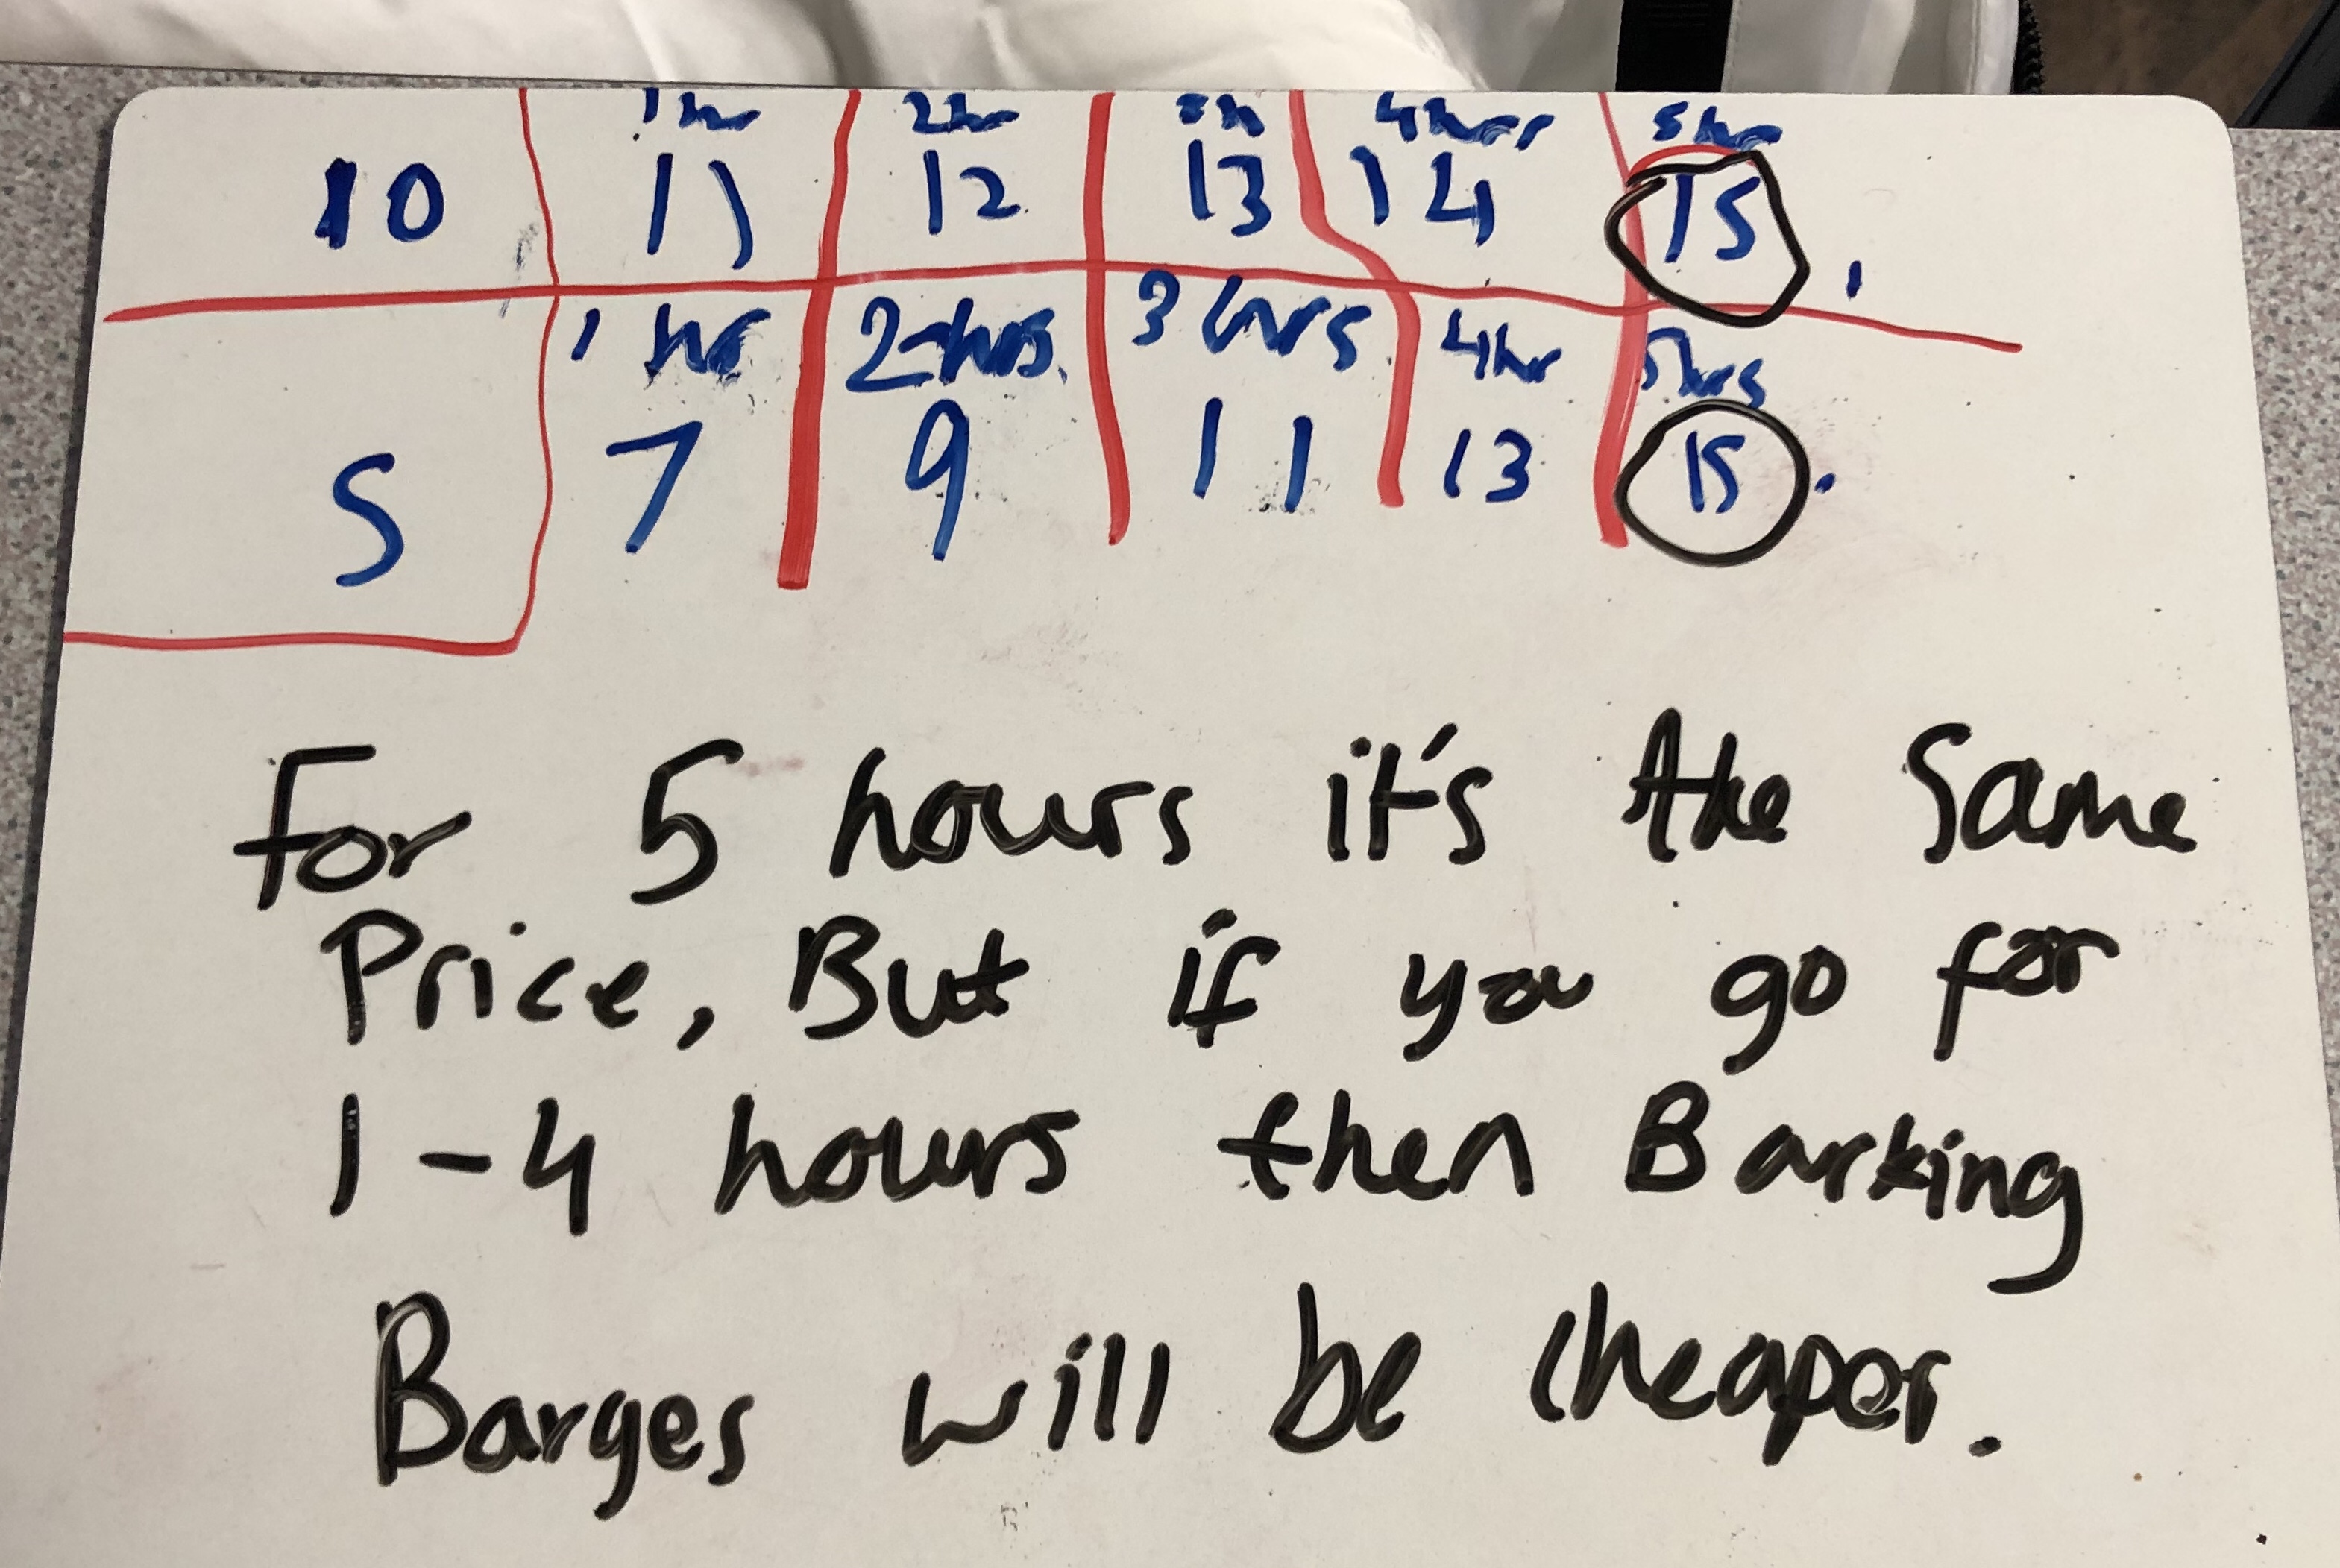 1 hr 2hr 3h 4hrs 5 hr
10 11 12 13 14 15
1 hr 2hrs. 3 hrs 4hr 5hrs
5 7 9 11 13 15.
For 5 hours it's the Same
Price, But if you go for
1-4 hours then Barking
Barges will be cheaper.